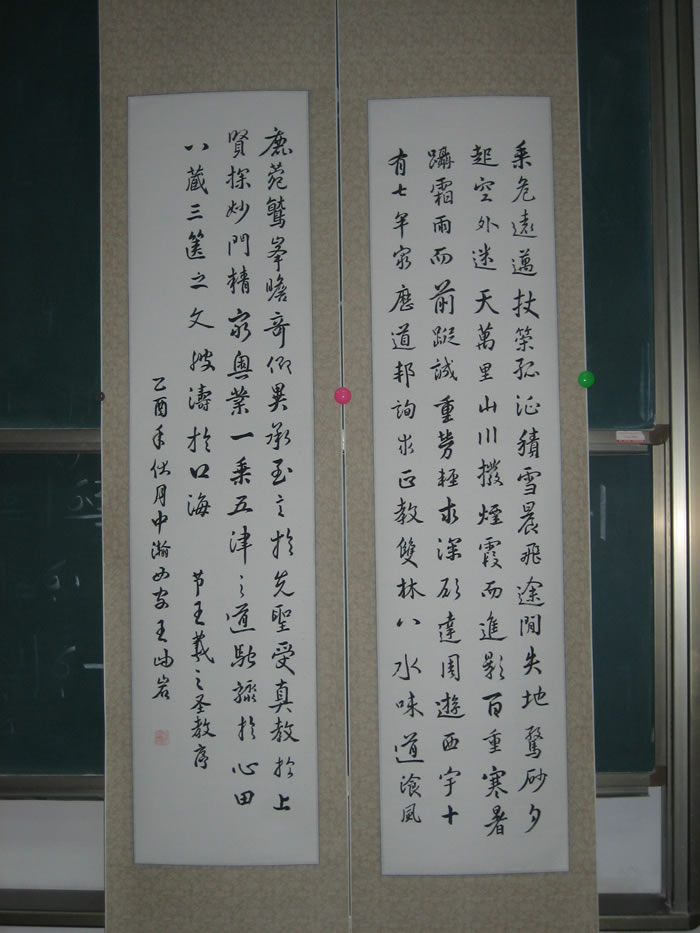 乘危遠邁杖策孤征積雪晨飛途閒失地驚砂夕
起空外迷天萬里山川撥煙霞而進影百重寒暑
躡霜雨而前蹤誠重勞輕求深願達周遊西宇十
有七年窮歷道邦詢求正教雙林八水味道飡風
鹿菀鷲峯瞻奇仰異承至言於先聖受真教於上
賢探妙門精窮奧業一乘五津之道馳驟於心田
八藏三篋之文波濤於口海
节王羲之圣教序
乙酉年伏月中瀚西安王岫岩